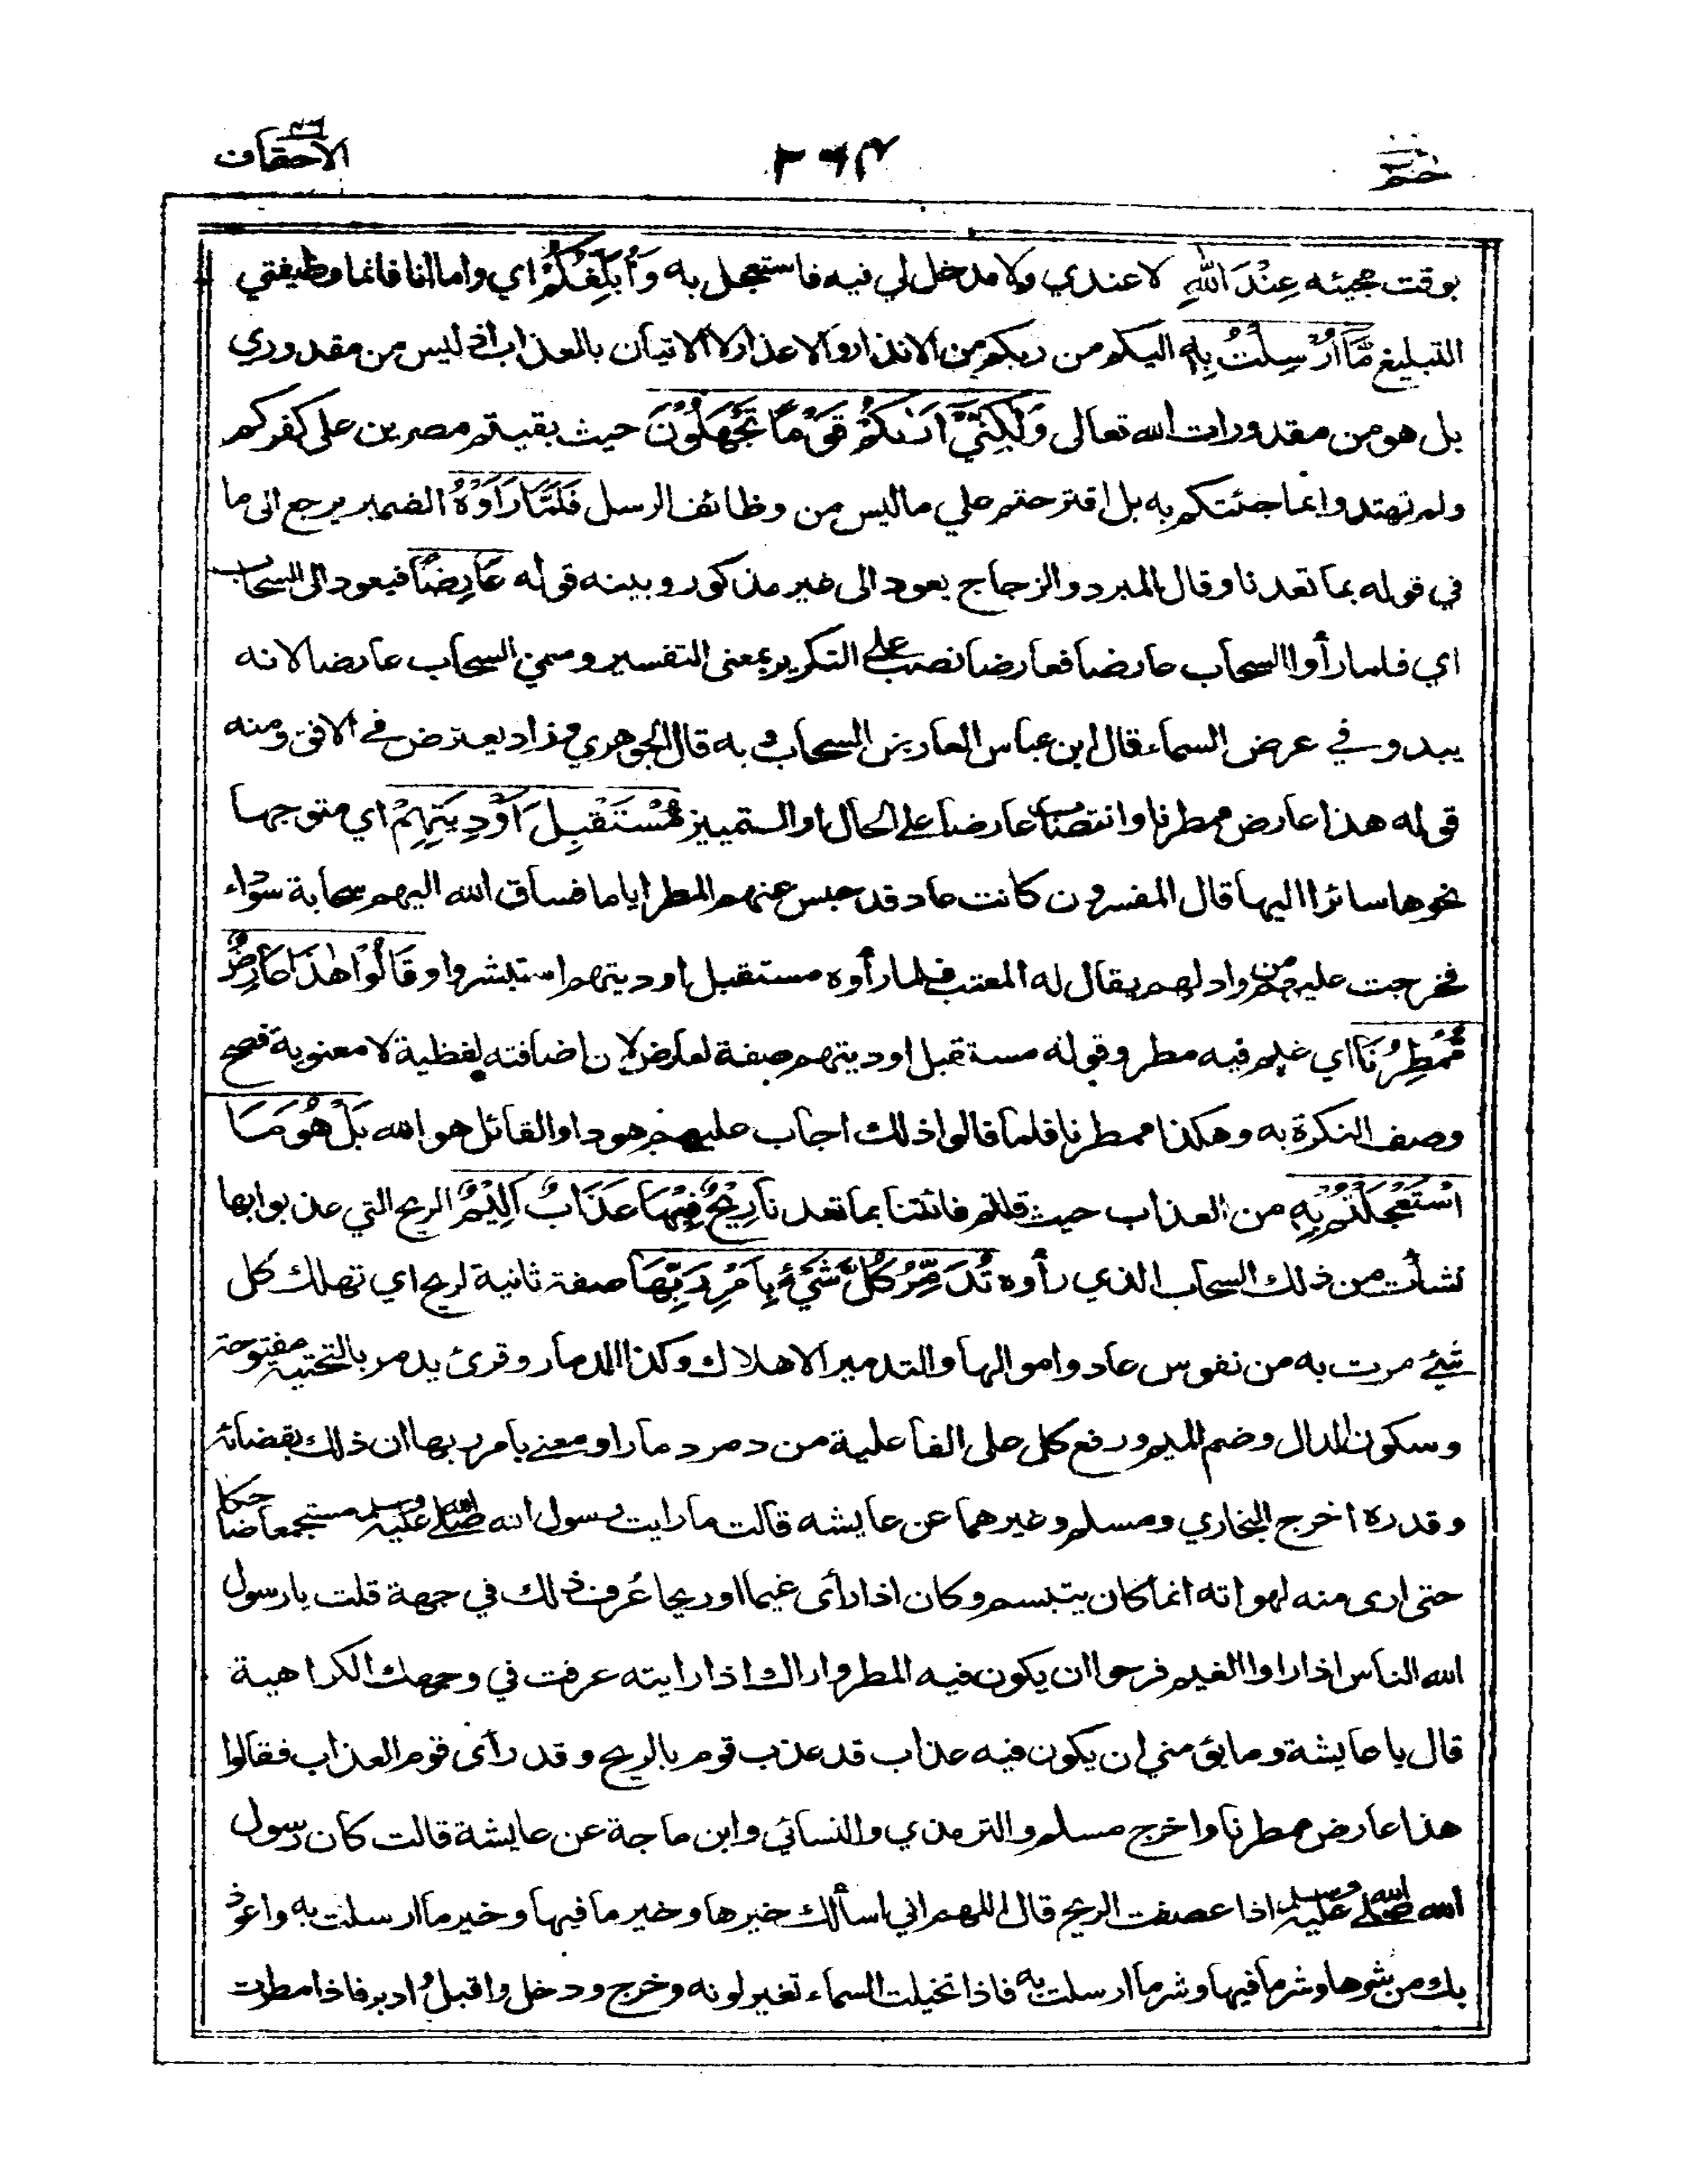 حٰم
٢٦٤
الاحقاف
بوقت مجيئه عِنْدَ اللّٰهِ لا عندي ولا مدخل لي فيه فاستعجل به وَاُبَلِّغُكُمْ اي واما انا فانما وظيفتي
التبليغ مَّآ اُرْسِلْتُ بِهٖ اليكم من ربكم من الانذار والاعذار لا الاتيان بالعذاب اذ ليس من مقدوري
بل هو من مقدورات الله تعالى وَلٰكِنِّيْٓ اَرٰىكُمْ قَوْمًا تَجْهَلُوْنَ حيث بقيتم مصرين على كفركم
ولم تهتدوا بما جئتكم به بل اقترحتم علي ما ليس من وظائف الرسل فَلَمَّا رَاَوْهُ الضمير يرجع الى ما
في قوله بما تعدنا وقال المبرد والزجاج يعود الى غير مذكور وبينه قوله عَارِضًا فيعود الى السحاب
اي فلما رأوا السحاب عارضا فعارضا نصب على التكرير بمعنى التفسير وسمي السحاب عارضا لانه
يبدو في عرض السماء قال ابن عباس العارض السحاب وبه قال الجوهري وزاد يعترض في الافق ومنه
قوله هذا عارض ممطرنا وانتصاب عارضا على الحال او التمييز مُّسْتَقْبِلَ اَوْدِيَتِهِمْ اي متوجها
نحوها سائرا اليها قال المفسرون كانت عاد قد حبس عنهم المطر اياما فساق الله اليهم سحابة سوداء
فخرجت عليهم من واد لهم يقال له المعتب فلما رأوه مستقبل اوديتهم استبشروا وقَالُوْا هٰذَا عَارِضٌ
مُّمْطِرُنَا اي غيم فيه مطر وقوله مستقبل اوديتهم صفة لعارض لان اضافته لفظية لا معنوية فصح
وصف النكرة به وهكذا ممطرنا فلما قالوا ذلك اجاب عليهم هود او القائل هو الله بَلْ هُوَ مَا
اسْتَعْجَلْتُمْ بِهٖ من العذاب حيث قلتم فائتنا بما تعدنا رِيْحٌ فِيْهَا عَذَابٌ اَلِيْمٌ الريح التي عذبوا بها
نشأت من ذلك السحاب الذي رأوه تُدَمِّرُ كُلَّ شَيْءٍۢ بِاَمْرِ رَبِّهَا صفة ثانية لريح اي تهلك كل
شيئ مرت به من نفوس عاد واموالها والتدمير الاهلاك وكذا الدمار وقرئ يدمر بالتحتية مفتوحة
وسكون الدال وضم الميم ورفع كل على الفاعلية من دمر دمارا ومعنى بامر ربها ان ذلك بقضائه
وقدره اخرج البخاري ومسلم وغيرهما عن عايشه قالت ما رايت رسول الله صلى الله عليه وسلم مستجمعا ضاحكا
حتى ارى منه لهواته انما كان يتبسم وكان اذا رأى غيما او ريحا عُرف ذلك في جهة قلت يا رسول
الله الناس اذا راوا الغيم فرحوا ان يكون فيه المطر واراك اذا رايته عرفت في وجهك الكراهية
قال يا عايشة وما يؤمنني ان يكون فيه عذاب قد عذب قوم بالريح وقد رأى قوم العذاب فقالوا
هذا عارض ممطرنا واخرج مسلم والترمذي والنسائي وابن ماجة عن عايشة قالت كان رسول
الله صلى الله عليه وسلم اذا عصفت الريح قال اللهم اني اسألك خيرها وخير ما فيها وخير ما ارسلت به واعوذ
بك من شرها وشر ما فيها وشر ما ارسلت به فاذا تخيلت السماء تغير لونه وخرج ودخل واقبل وادبر فاذا مطرت